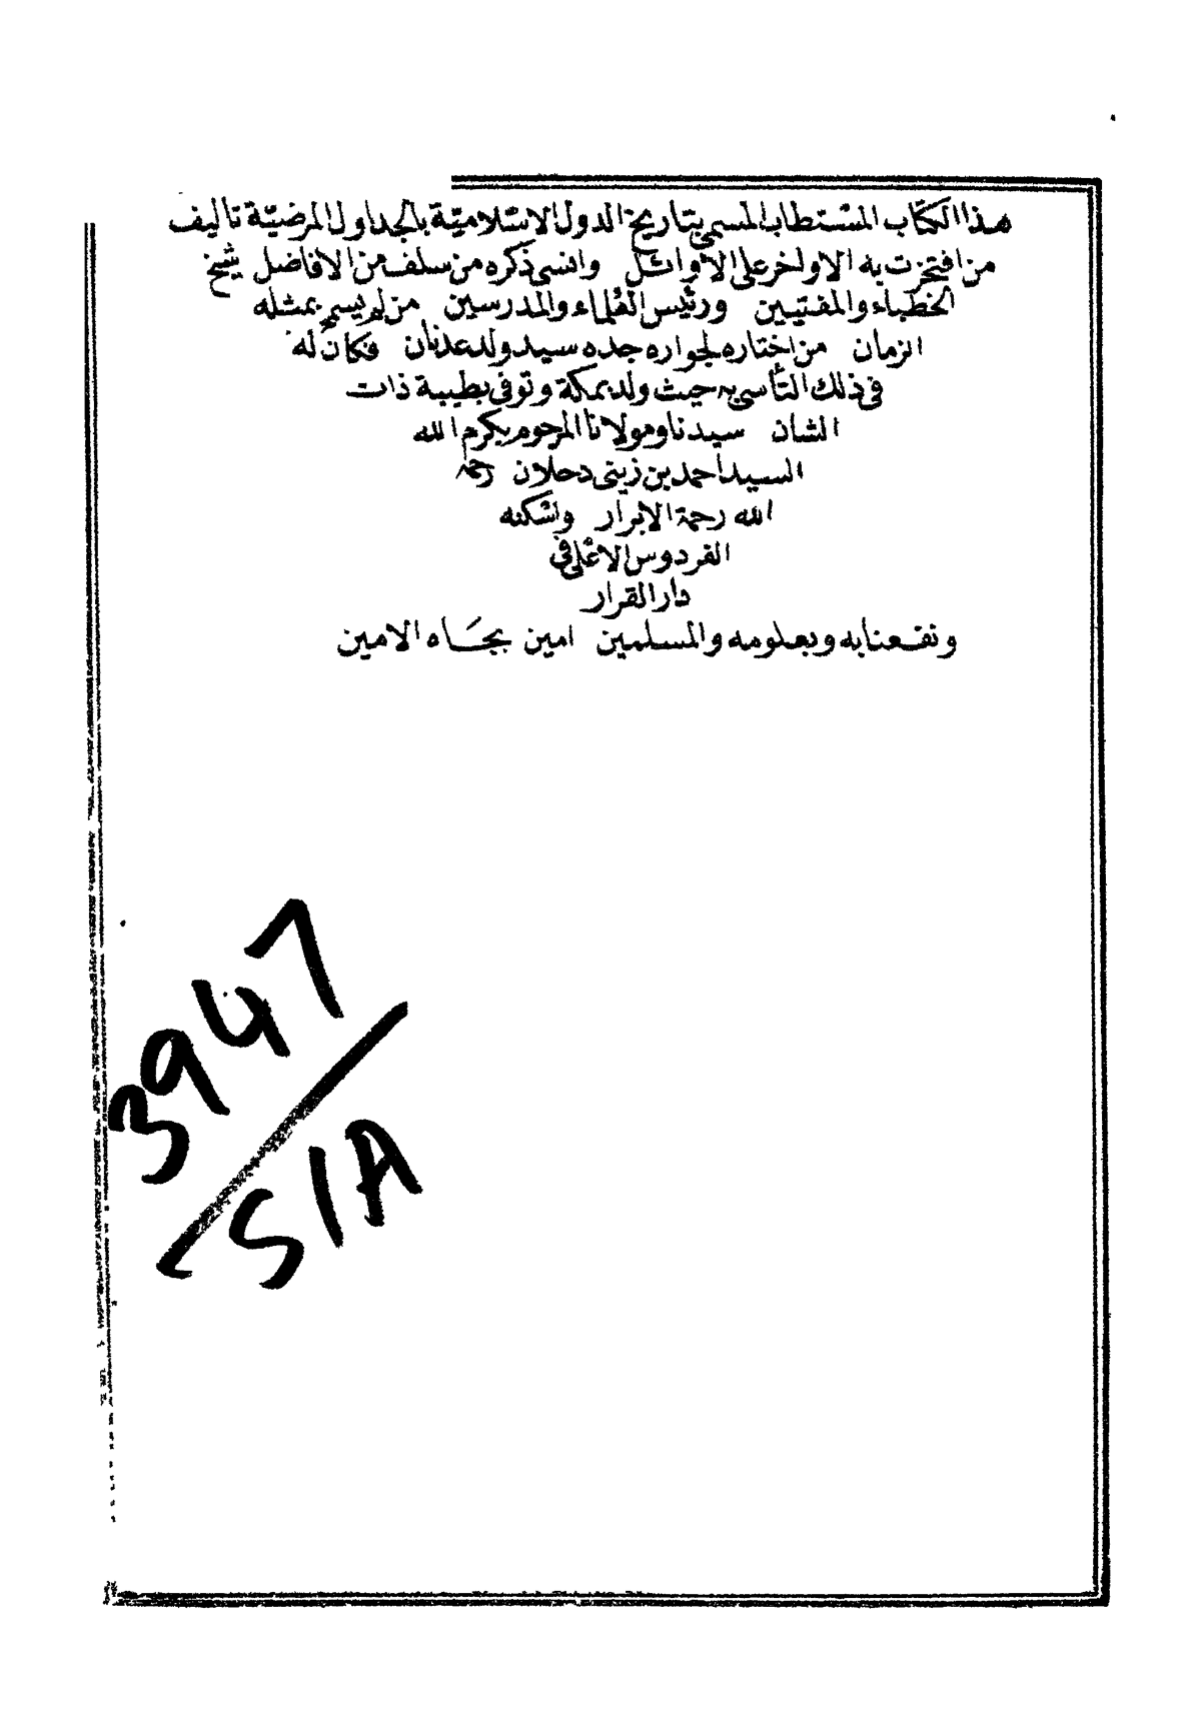 هذا الكتاب المستطاب المسمى بتاريخ الدول الاسلاميّة بالجداول المرضيّة تاليف
من افتخرت به الاواخر على الاوائل وانسى ذكره من سلف من الافاضل شيخ
الخطباء والمفتيين ورئيس العلماء والمدرسين من لم يسمح بمثله
الزمان من اختاره لجواره جده سيد ولد عدنان فكان له
فى ذلك التأسى به حيث ولد بمكة وتوفى بطيبة ذات
الشان سيدنا ومولانا المرحوم بكرم الله
السيد احمد بن زينى دحلان رحمه
الله رحمة الابرار واسكنه
الفردوس الاعلى فى
دار القرار
ونفعنا به وبعلومه والمسلمين امين بجاه الامين
3947
S/A